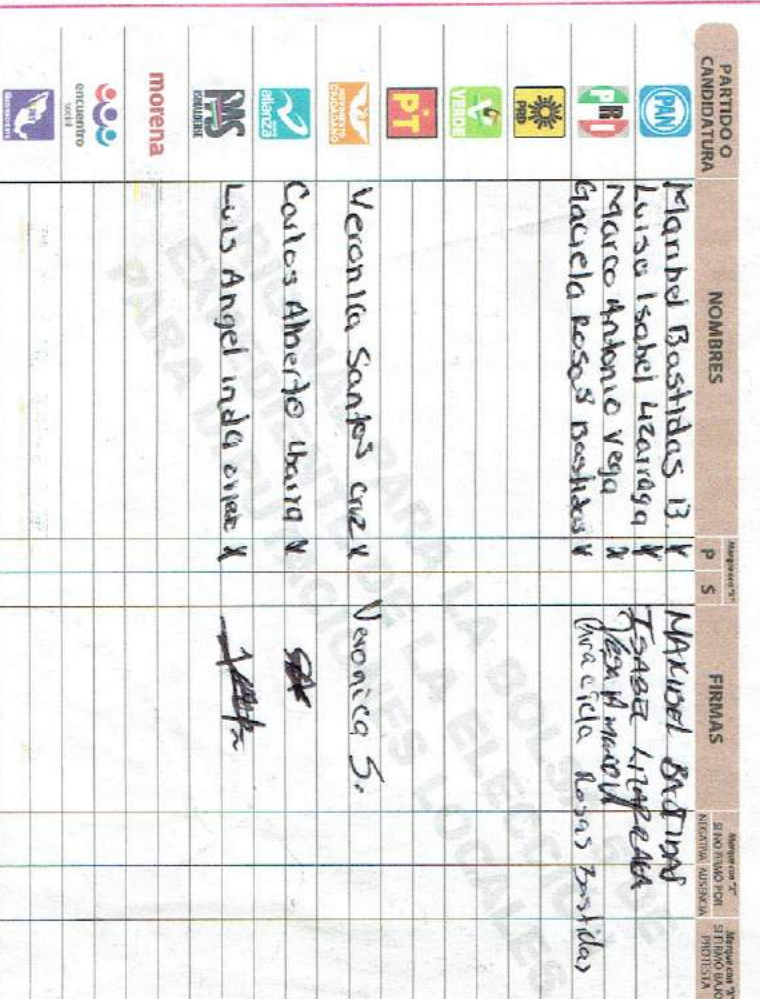 PARTIDO O
CANDIDATURA
NOMBRES
Marque con "X"
P S
FIRMAS
Marque con "X"
SI NO FIRMÓ POR
NEGATIVA AUSENCIA
Marque con "X"
SI FIRMÓ BAJO
PROTESTA
PAN
Maribel Bastidas B. X
MARIBEL BASTIDAS
Luisa Isabel Lizarraga X
ISABEL LIZARRAGA
PRI
Marco Antonio Vega X
Graciela Rosas Bastidas X
Graciela Rosas Bastidas
PRD
VERDE
PT
MOVIMIENTO
CIUDADANO
Veronica Santos Cruz X
Veronica S.
nueva
alianza
Carlos Alberto Ibarra X
PAS
SINALOENSE
Luis Angel Inda X
morena
encuentro
social
PARA LA BOLSA DE
EXPEDIENTE DE LA ELECCIÓN
PARA DIPUTACIONES LOCALES